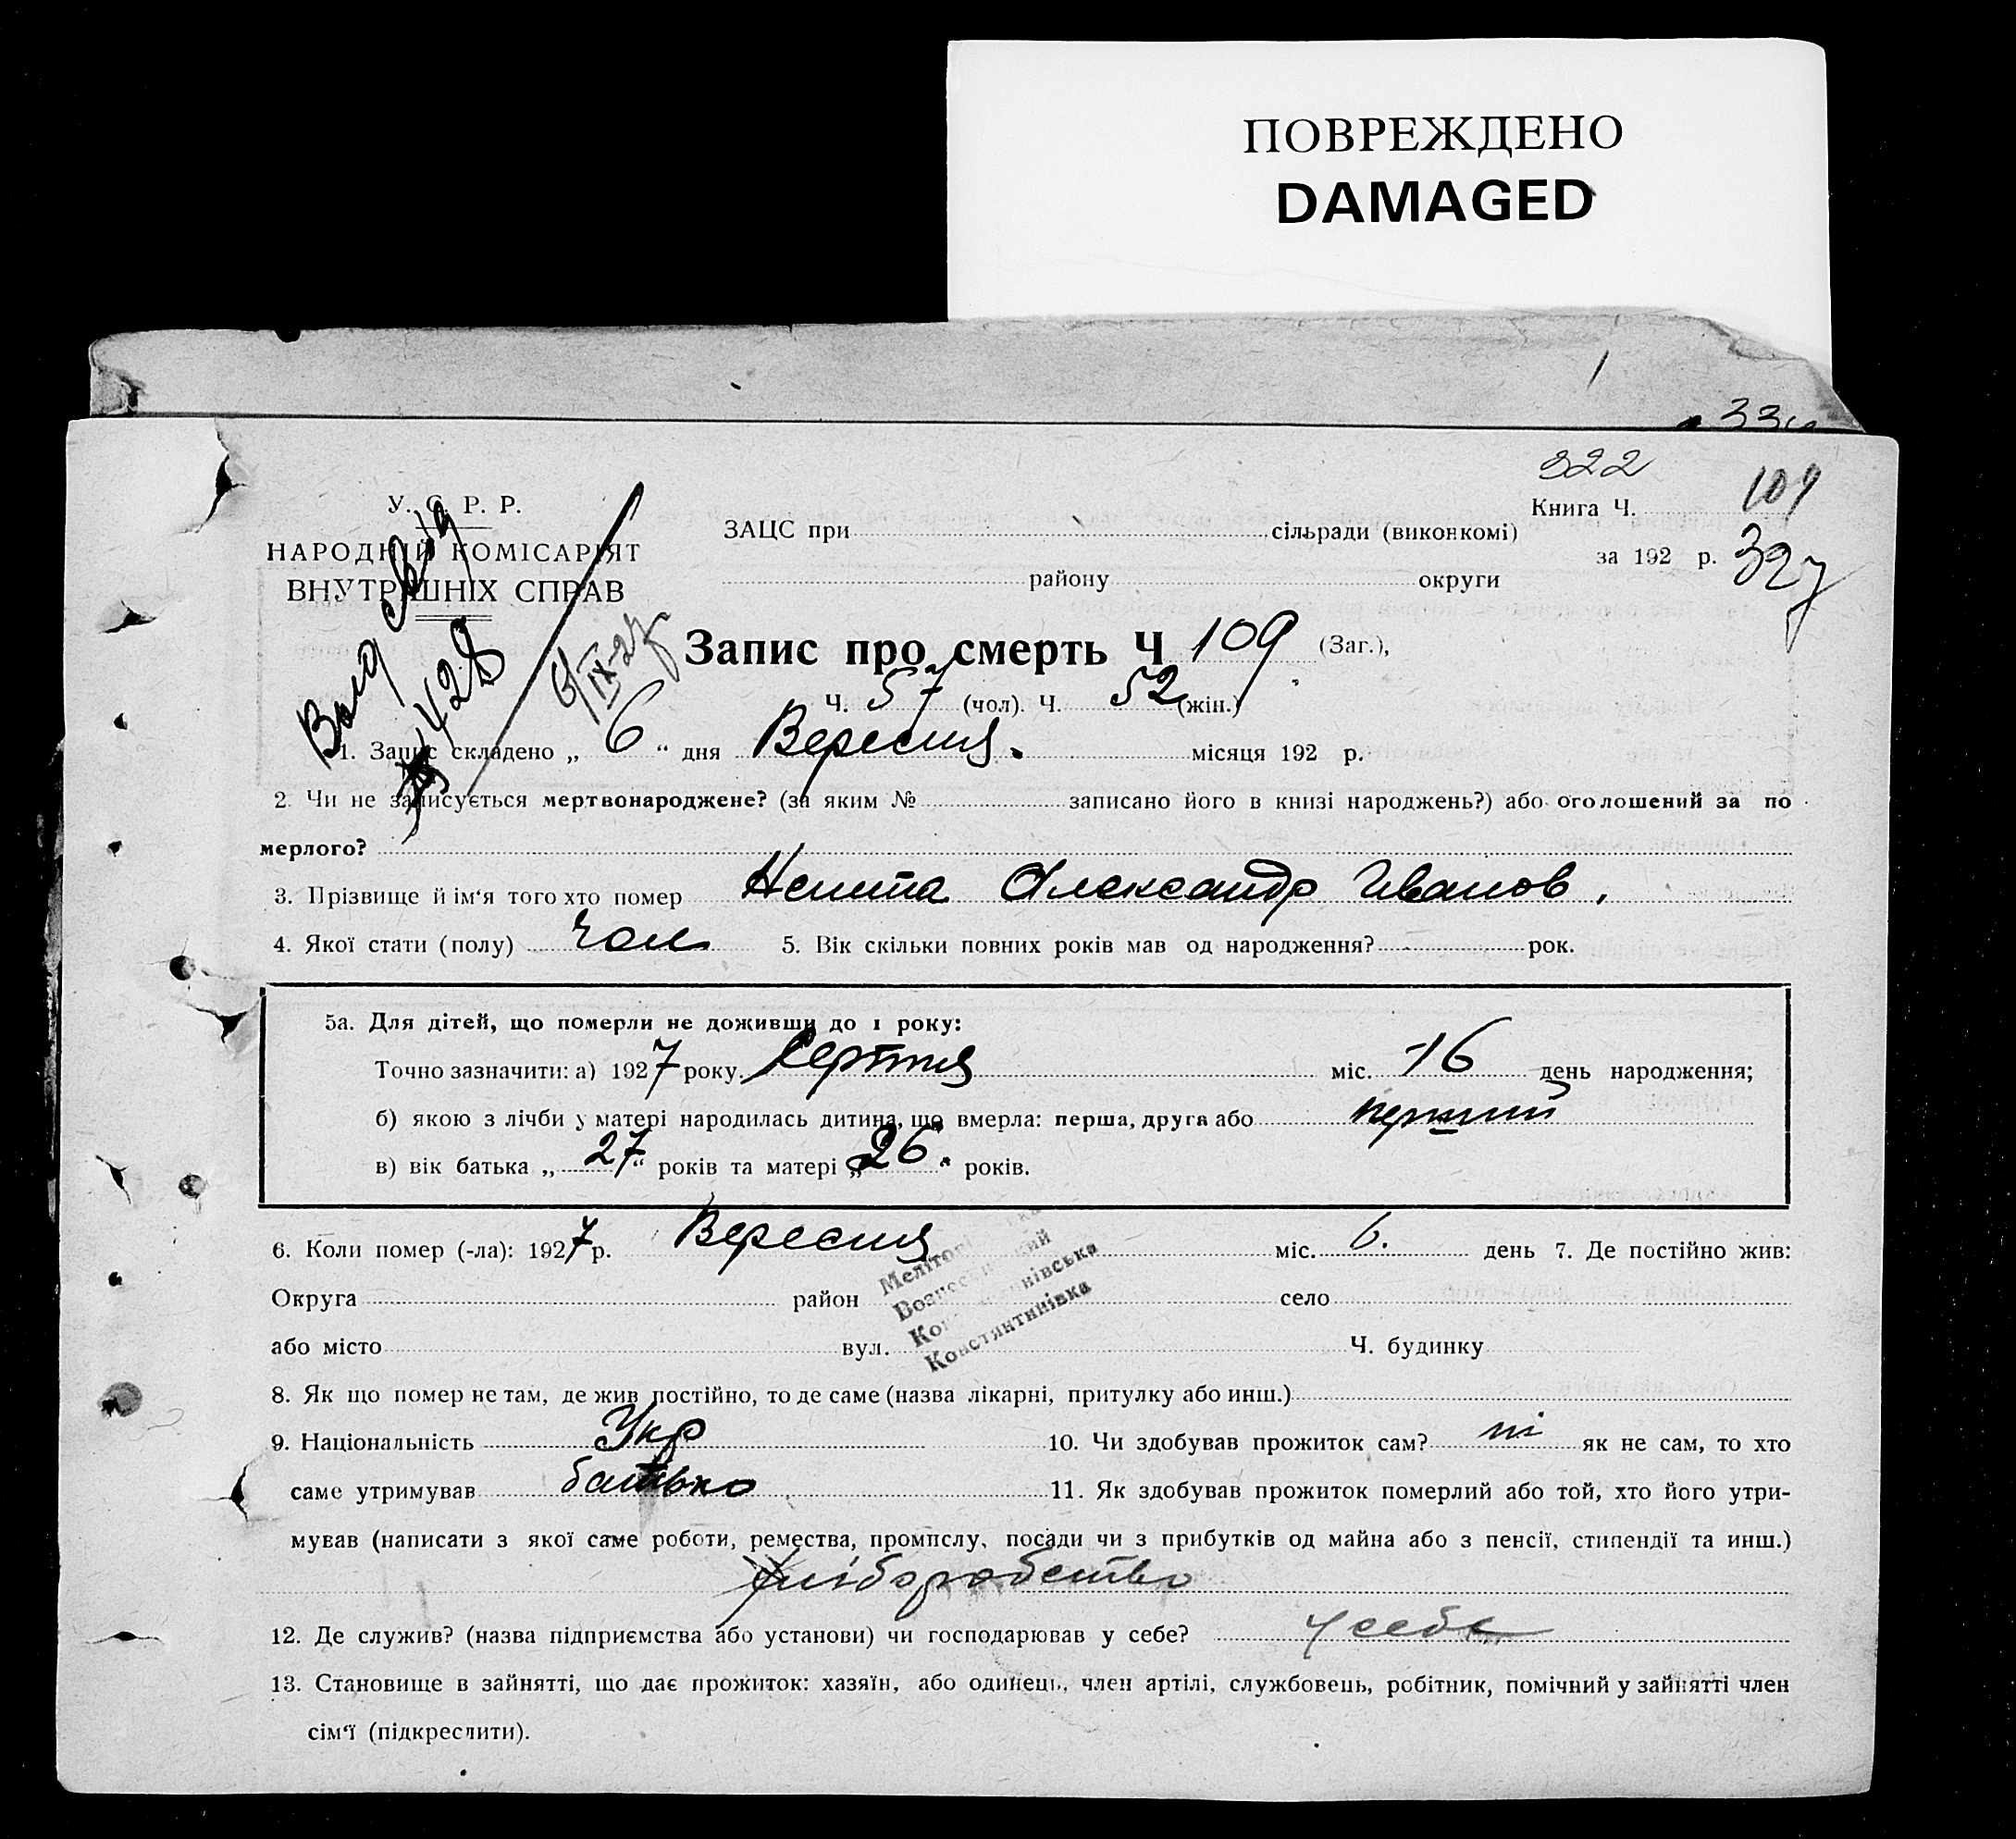 ПОВРЕЖДЕНО
DAMAGED
1
322
У. С. Р. Р.
НАРОДНІЙ КОМІСАРІЯТ
ВНУТРІШНІХ СПРАВ
ЗАЦС при сільради (виконкомі)
району округи
Книга Ч. 109
за 192 р. 327
428
6/IX-27
Запис про смерть Ч 109 (Заг.),
Ч. 57 (чол). Ч. 52 (жін.)
1. Запис складено „ 6 “ дня Вересня. місяця 192 р.
2. Чи не записується мертвонароджене? (за яким № записано його в книзі народжень?) або оголошений за по
мерлого?
3. Прізвище й ім‘я того хто помер Александр Иванов.
4. Якої стати (полу) чол 5. Вік скільки повних років мав од народження? рок.
5а. Для дітей, що померли не доживши до 1 року:
Точно зазначити: а) 1927 року. Серпня міс. 16 день народження;
б) якою з лічби у матері народилась дитина, що вмерла: перша, друга або перший
в) вік батька „ 27 “ років та матері „ 26. “ років.
6. Коли помер (-ла): 1927 р. Вересня міс. 6. день 7. Де постійно жив:
Округа район село
або місто вул. Ч. будинку
Констянтинівка
8. Як що помер не там, де жив постійно, то де саме (назва лікарні, притулку або инш.)
9. Національність Укр 10. Чи здобував прожиток сам? ні як не сам, то хто
саме утримував батько 11. Як здобував прожиток померлий або той, хто його утри-
мував (написати з якої саме роботи, ремества, промислу, посади чи з прибутків од майна або з пенсії, стипендії та инш.)
хліборобство
12. Де служив? (назва підприємства або установи) чи господарював у себе? у себе
13. Становище в зайнятті, що дає прожиток: хазяїн, або одинець, член артілі, службовець, робітник, помічний у зайнятті член
сім‘ї (підкреслити).